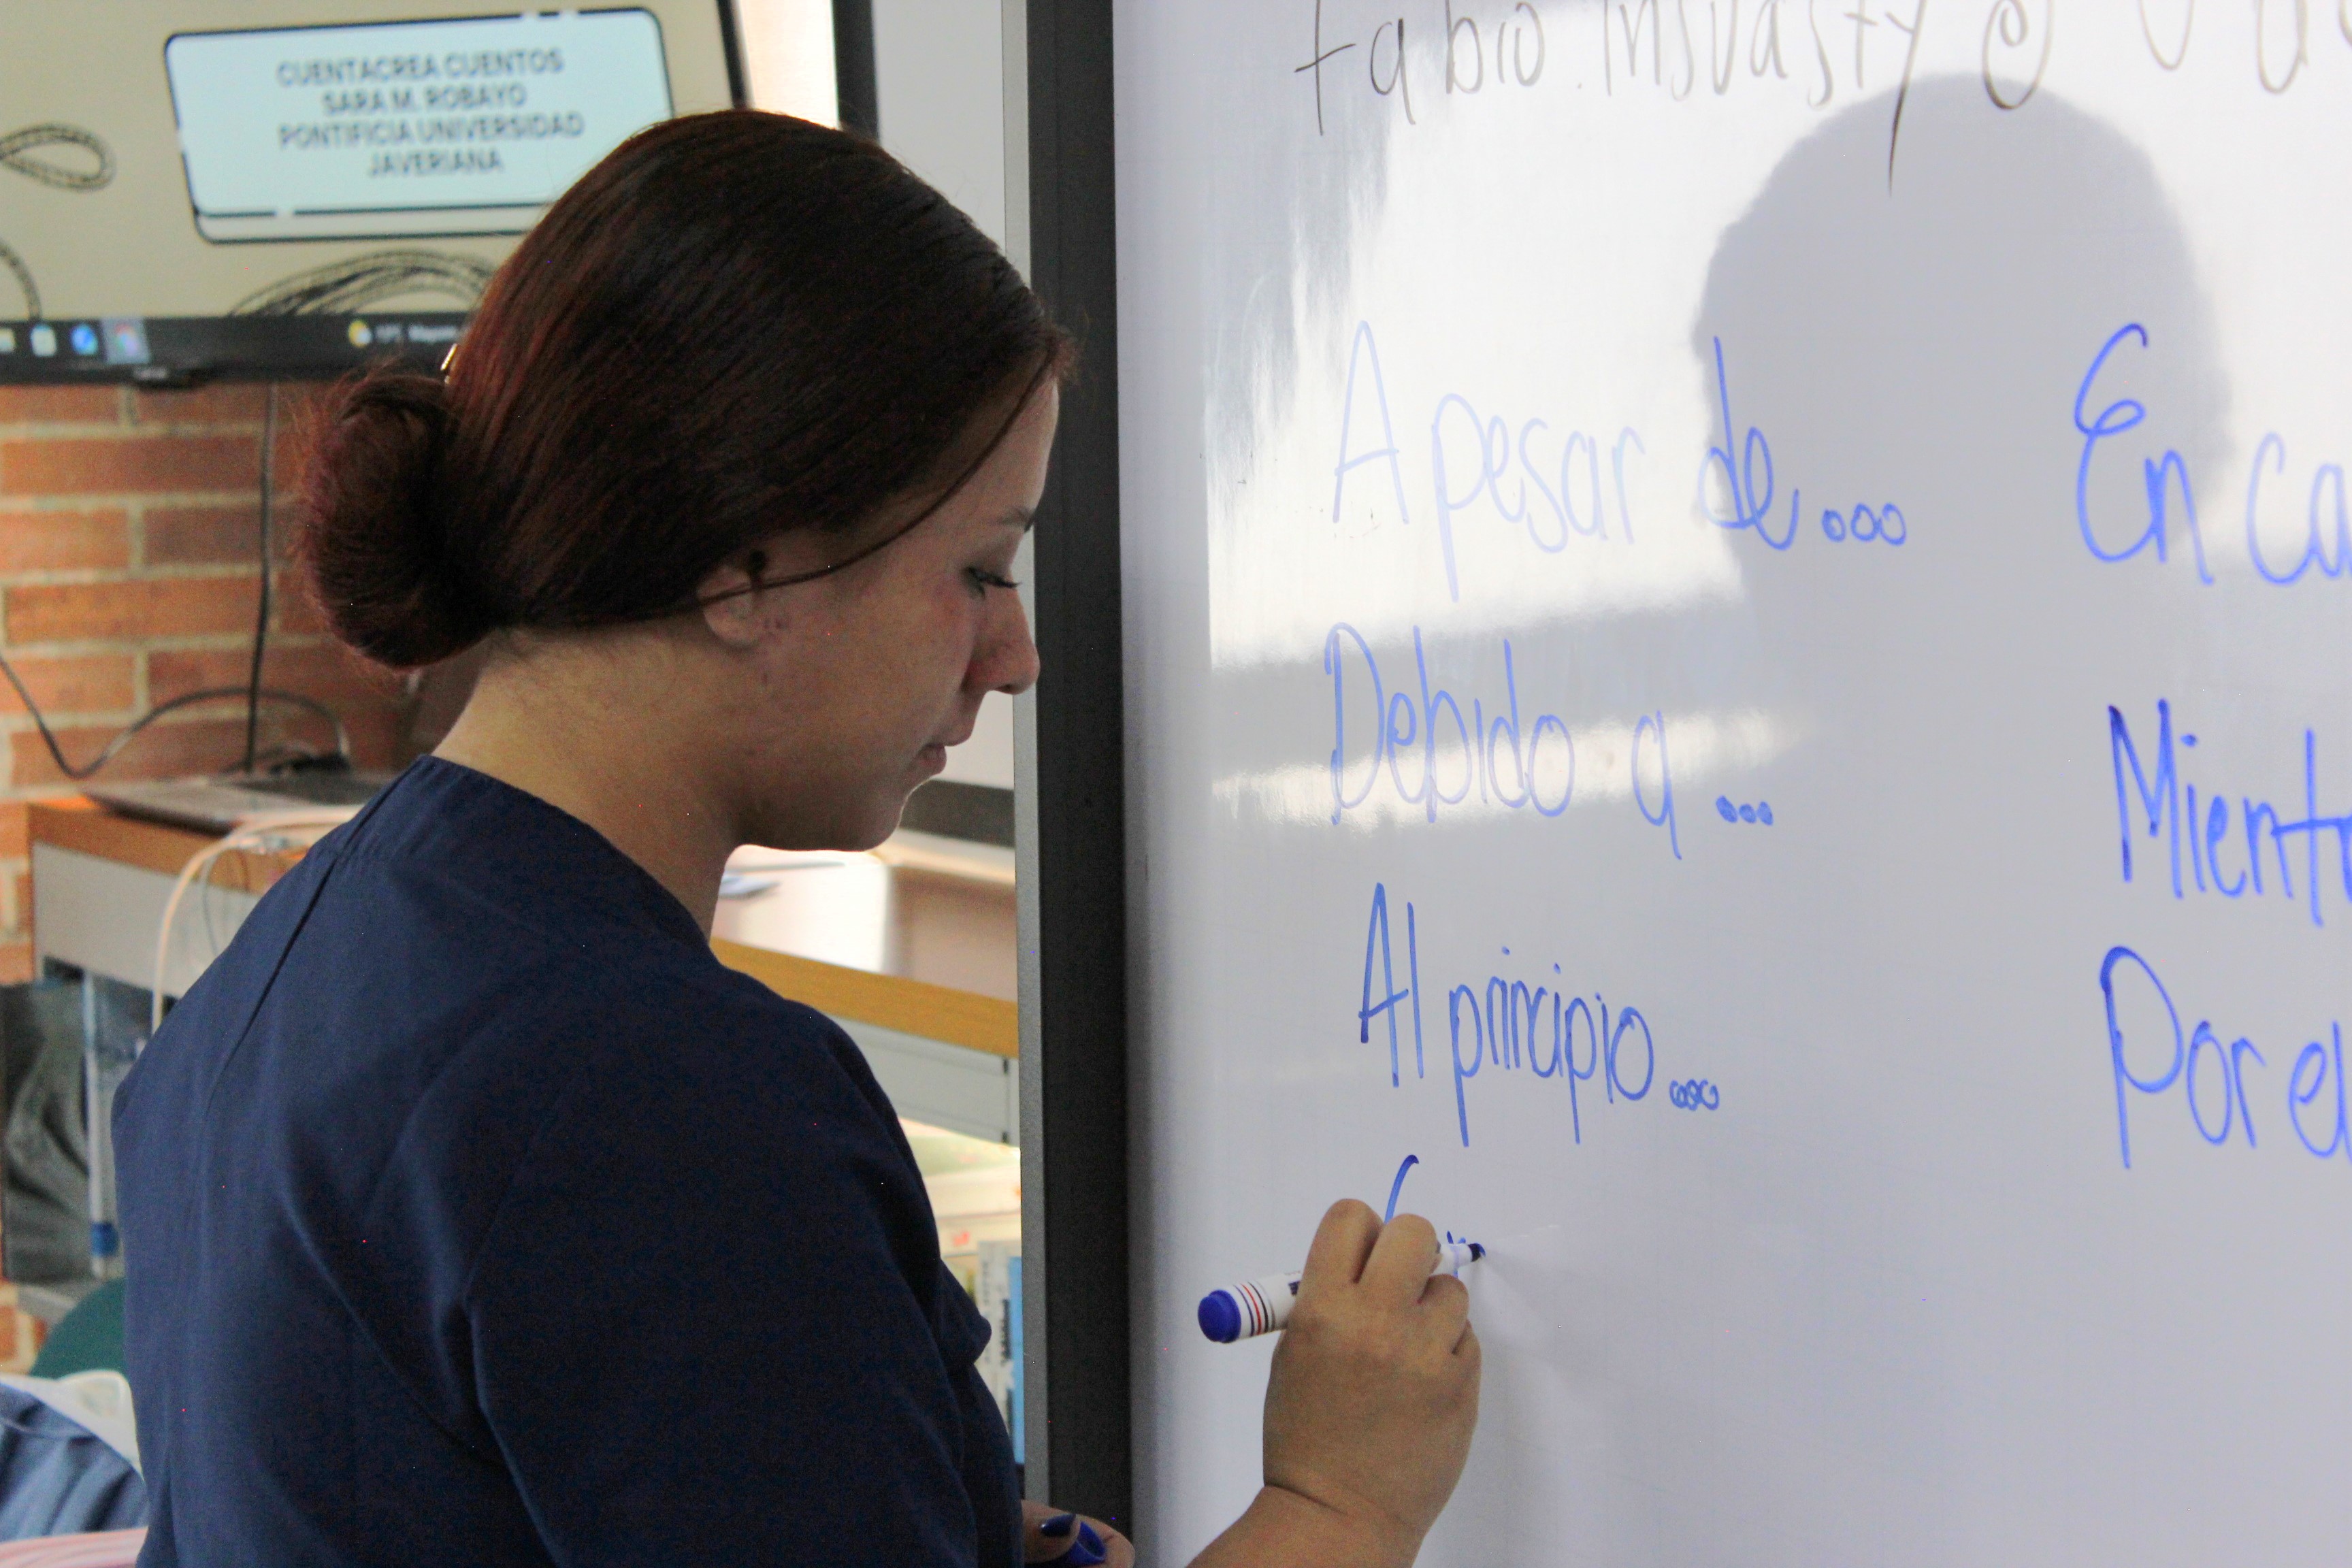 CUENTACREA CUENTOS
SARA M. ROBAYO
PONTIFICIA UNIVERSIDAD
JAVERIANA
Fabio.Insuasty@
A pesar de...
Debido a...
Al principio...
En ca
Mientr
Por el